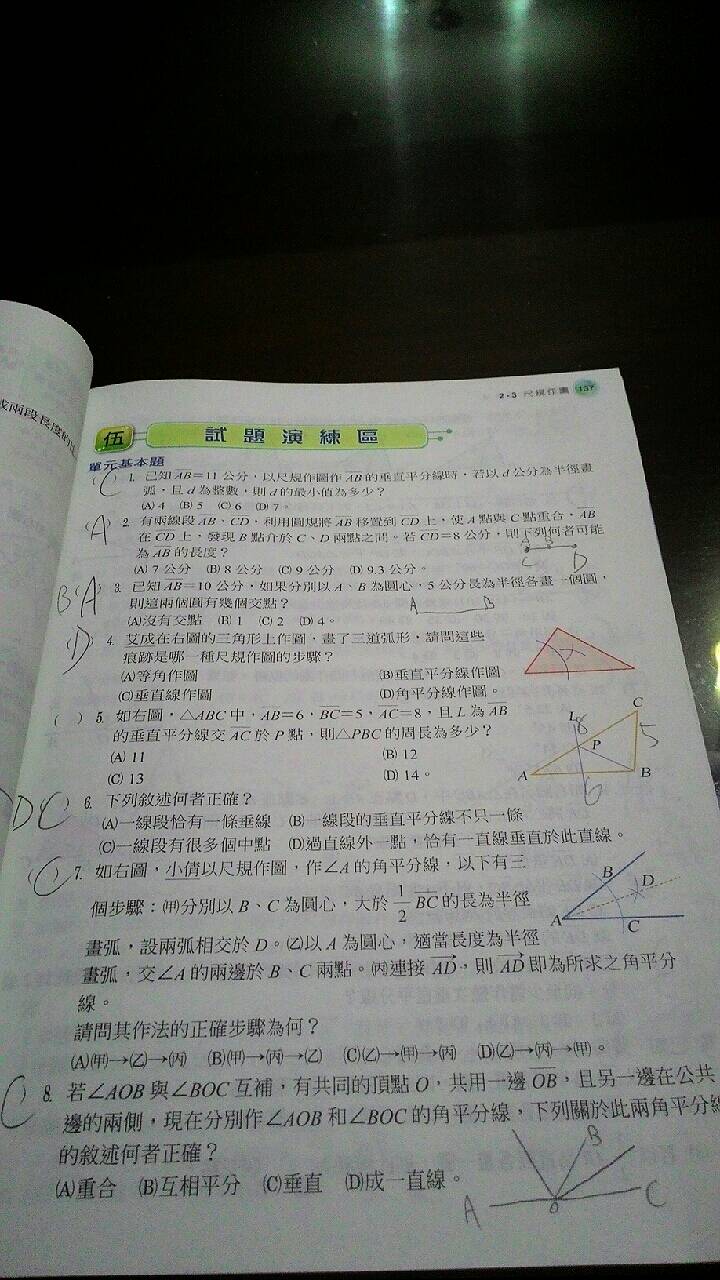 2-3 尺規作圖 137
伍 試題演練區
單元基本題
(C) 1. 已知AB=11公分，以尺規作圖作AB的垂直平分線時，若以d公分為半徑畫
弧，且d為整數，則d的最小值為多少？
(A) 4 (B) 5 (C) 6 (D) 7。
(A) 2. 有兩線段AB、CD，利用圓規將AB移置到CD上，使A點與C點重合，AB
在CD上，發現B點介於C、D兩點之間。若CD=8公分，則下列何者可能
為AB的長度？
A B
(A) 7公分 (B) 8公分 (C) 9公分 (D) 9.3公分。
C D
B (A) 3. 已知AB=10公分，如果分別以A、B為圓心，5公分長為半徑各畫一個圓，
則這兩個圓有幾個交點？
A B
(A)沒有交點 (B) 1 (C) 2 (D) 4。
(D) 4. 艾成在右圖的三角形上作圖，畫了三道弧形，請問這些
痕跡是哪一種尺規作圖的步驟？
(A)等角作圖 (B)垂直平分線作圖
(C)垂直線作圖 (D)角平分線作圖。
( ) 5. 如右圖，△ABC中，AB=6，BC=5，AC=8，且L為AB
的垂直平分線交AC於P點，則△PBC的周長為多少？
(A) 11 (B) 12
(C) 13 (D) 14。
C
L 8
P 5
A B
6
D C 6. 下列敘述何者正確？
(A)一線段恰有一條垂線 (B)一線段的垂直平分線不只一條
(C)一線段有很多個中點 (D)過直線外一點，恰有一直線垂直於此直線。
(C) 7. 如右圖，小倩以尺規作圖，作∠A的角平分線，以下有三
個步驟：㈙分別以B、C為圓心，大於1/2 BC的長為半徑
畫弧，設兩弧相交於D。㈚以A為圓心，適當長度為半徑
畫弧，交∠A的兩邊於B、C兩點。㈛連接AD，則AD即為所求之角平分
線。
B
D
A
C
請問其作法的正確步驟為何？
(A)㈙→㈚→㈛ (B)㈙→㈛→㈚ (C)㈚→㈙→㈛ (D)㈚→㈛→㈙。
C 8. 若∠AOB與∠BOC互補，有共同的頂點O，共用一邊OB，且另一邊在公共
邊的兩側，現在分別作∠AOB和∠BOC的角平分線，下列關於此兩角平分線
的敘述何者正確？
(A)重合 (B)互相平分 (C)垂直 (D)成一直線。
B
A O C